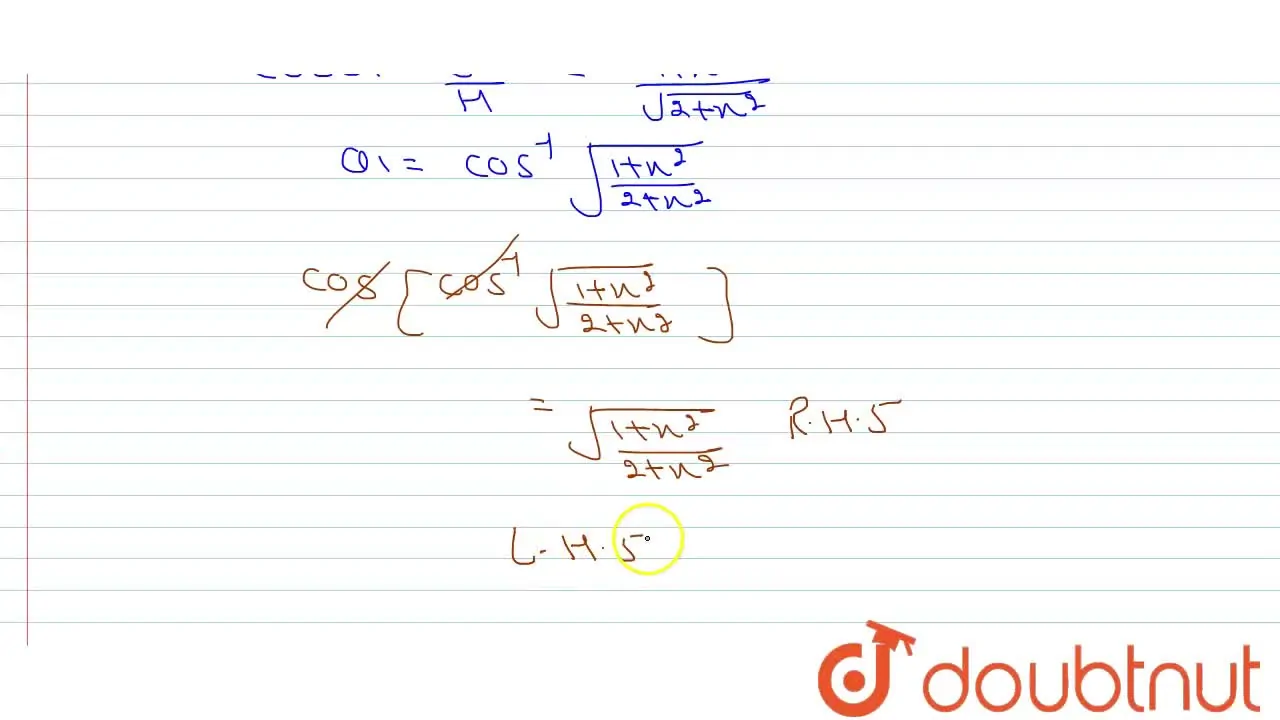 H √2+x²
θ1 = cos⁻¹ √(1+x²/2+x²)
cos [ cos⁻¹ √(1+x²/2+x²) ]
= √(1+x²/2+x²) R.H.S
L.H.S
doubtnut